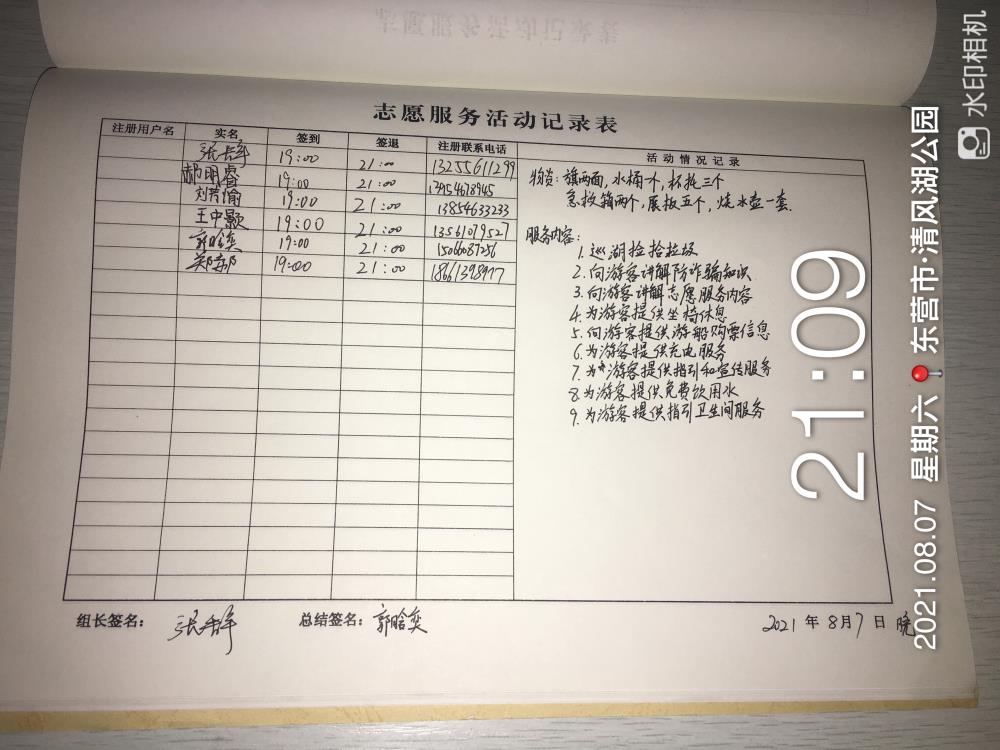 志愿服务活动记录表
注册用户名 实名 签到 签退 注册联系电话 活动情况记录
19:00 21:00 13255611299
郝明睿 19:00 21:00 13954678945
19:00 21:00 13854633233
王中颢 19:00 21:00 13561079527
郭晗奕 19:00 21:00 15066087256
19:00 21:00 18661398977
物资:旗两面,水桶一个,杯托三个
急救箱两个,展板五个,烧水壶一套.
服务内容:
1.巡湖捡拾垃圾
2.向游客讲解防诈骗知识
3.向游客讲解志愿服务内容
4.为游客提供坐椅休息
5.向游客提供游船购票信息
6.为游客提供充电服务
7.为游客提供指引和宣传服务
8.为游客提供免费饮用水
9.为游客提供指引卫生间服务
组长签名: 总结签名:郭晗奕 2021年8月7日 晚
21:09
2021.08.07 星期六 东营市·清风湖公园
水印相机